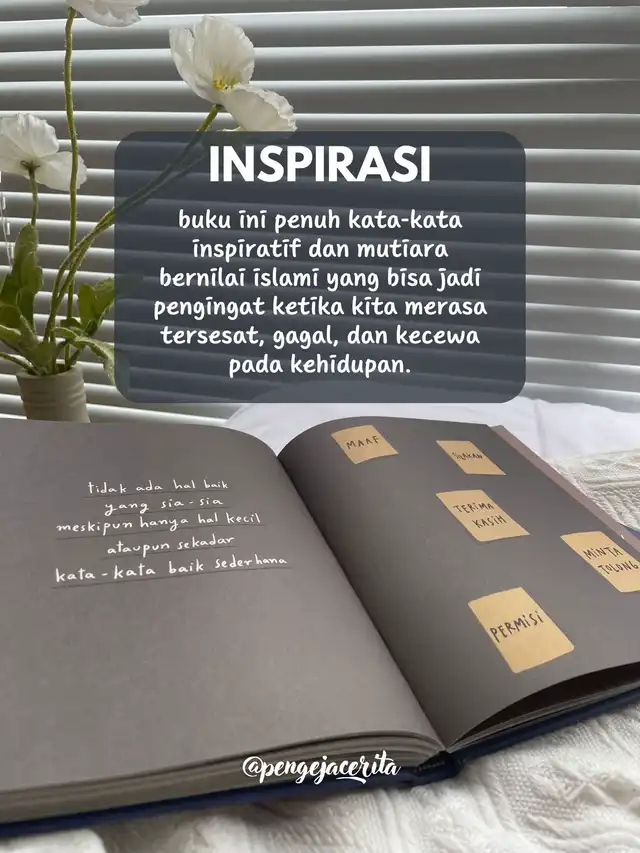 INSPIRASI
buku ini penuh kata-kata
inspiratif dan mutiara
bernilai islami yang bisa jadi
pengingat ketika kita merasa
tersesat, gagal, dan kecewa
pada kehidupan.
tidak ada hal baik
yang sia-sia
meskipun hanya hal kecil
ataupun sekadar
kata-kata baik sederhana
MAAF
SILAKAN
TERIMA
KASIH
MINTA
TOLONG
PERMISI
@pengejacerita